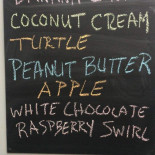 COCONUT CREAM
TURTLE
PEANUT BUTTER
APPLE
WHITE CHOCOLATE
RASPBERRY SWIRL